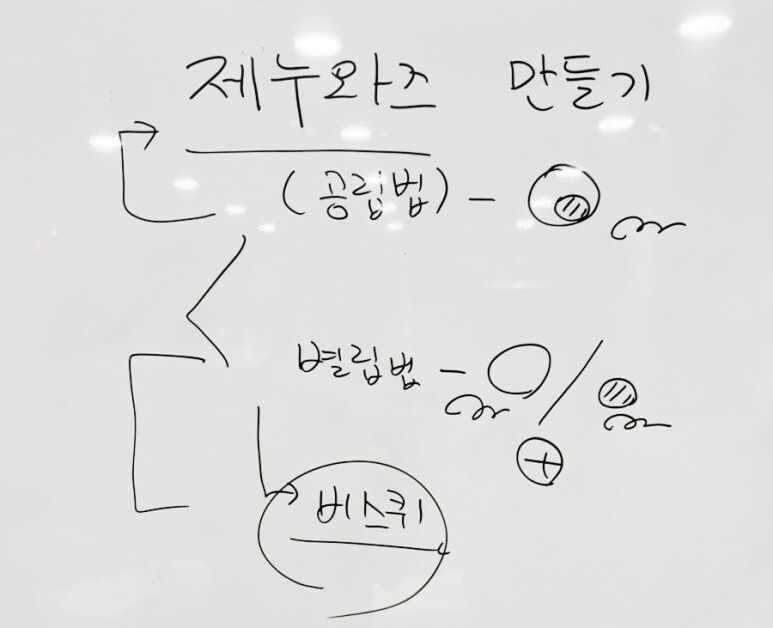 제누와즈 만들기
(공립법) -
별립법 - /
+
비스퀴